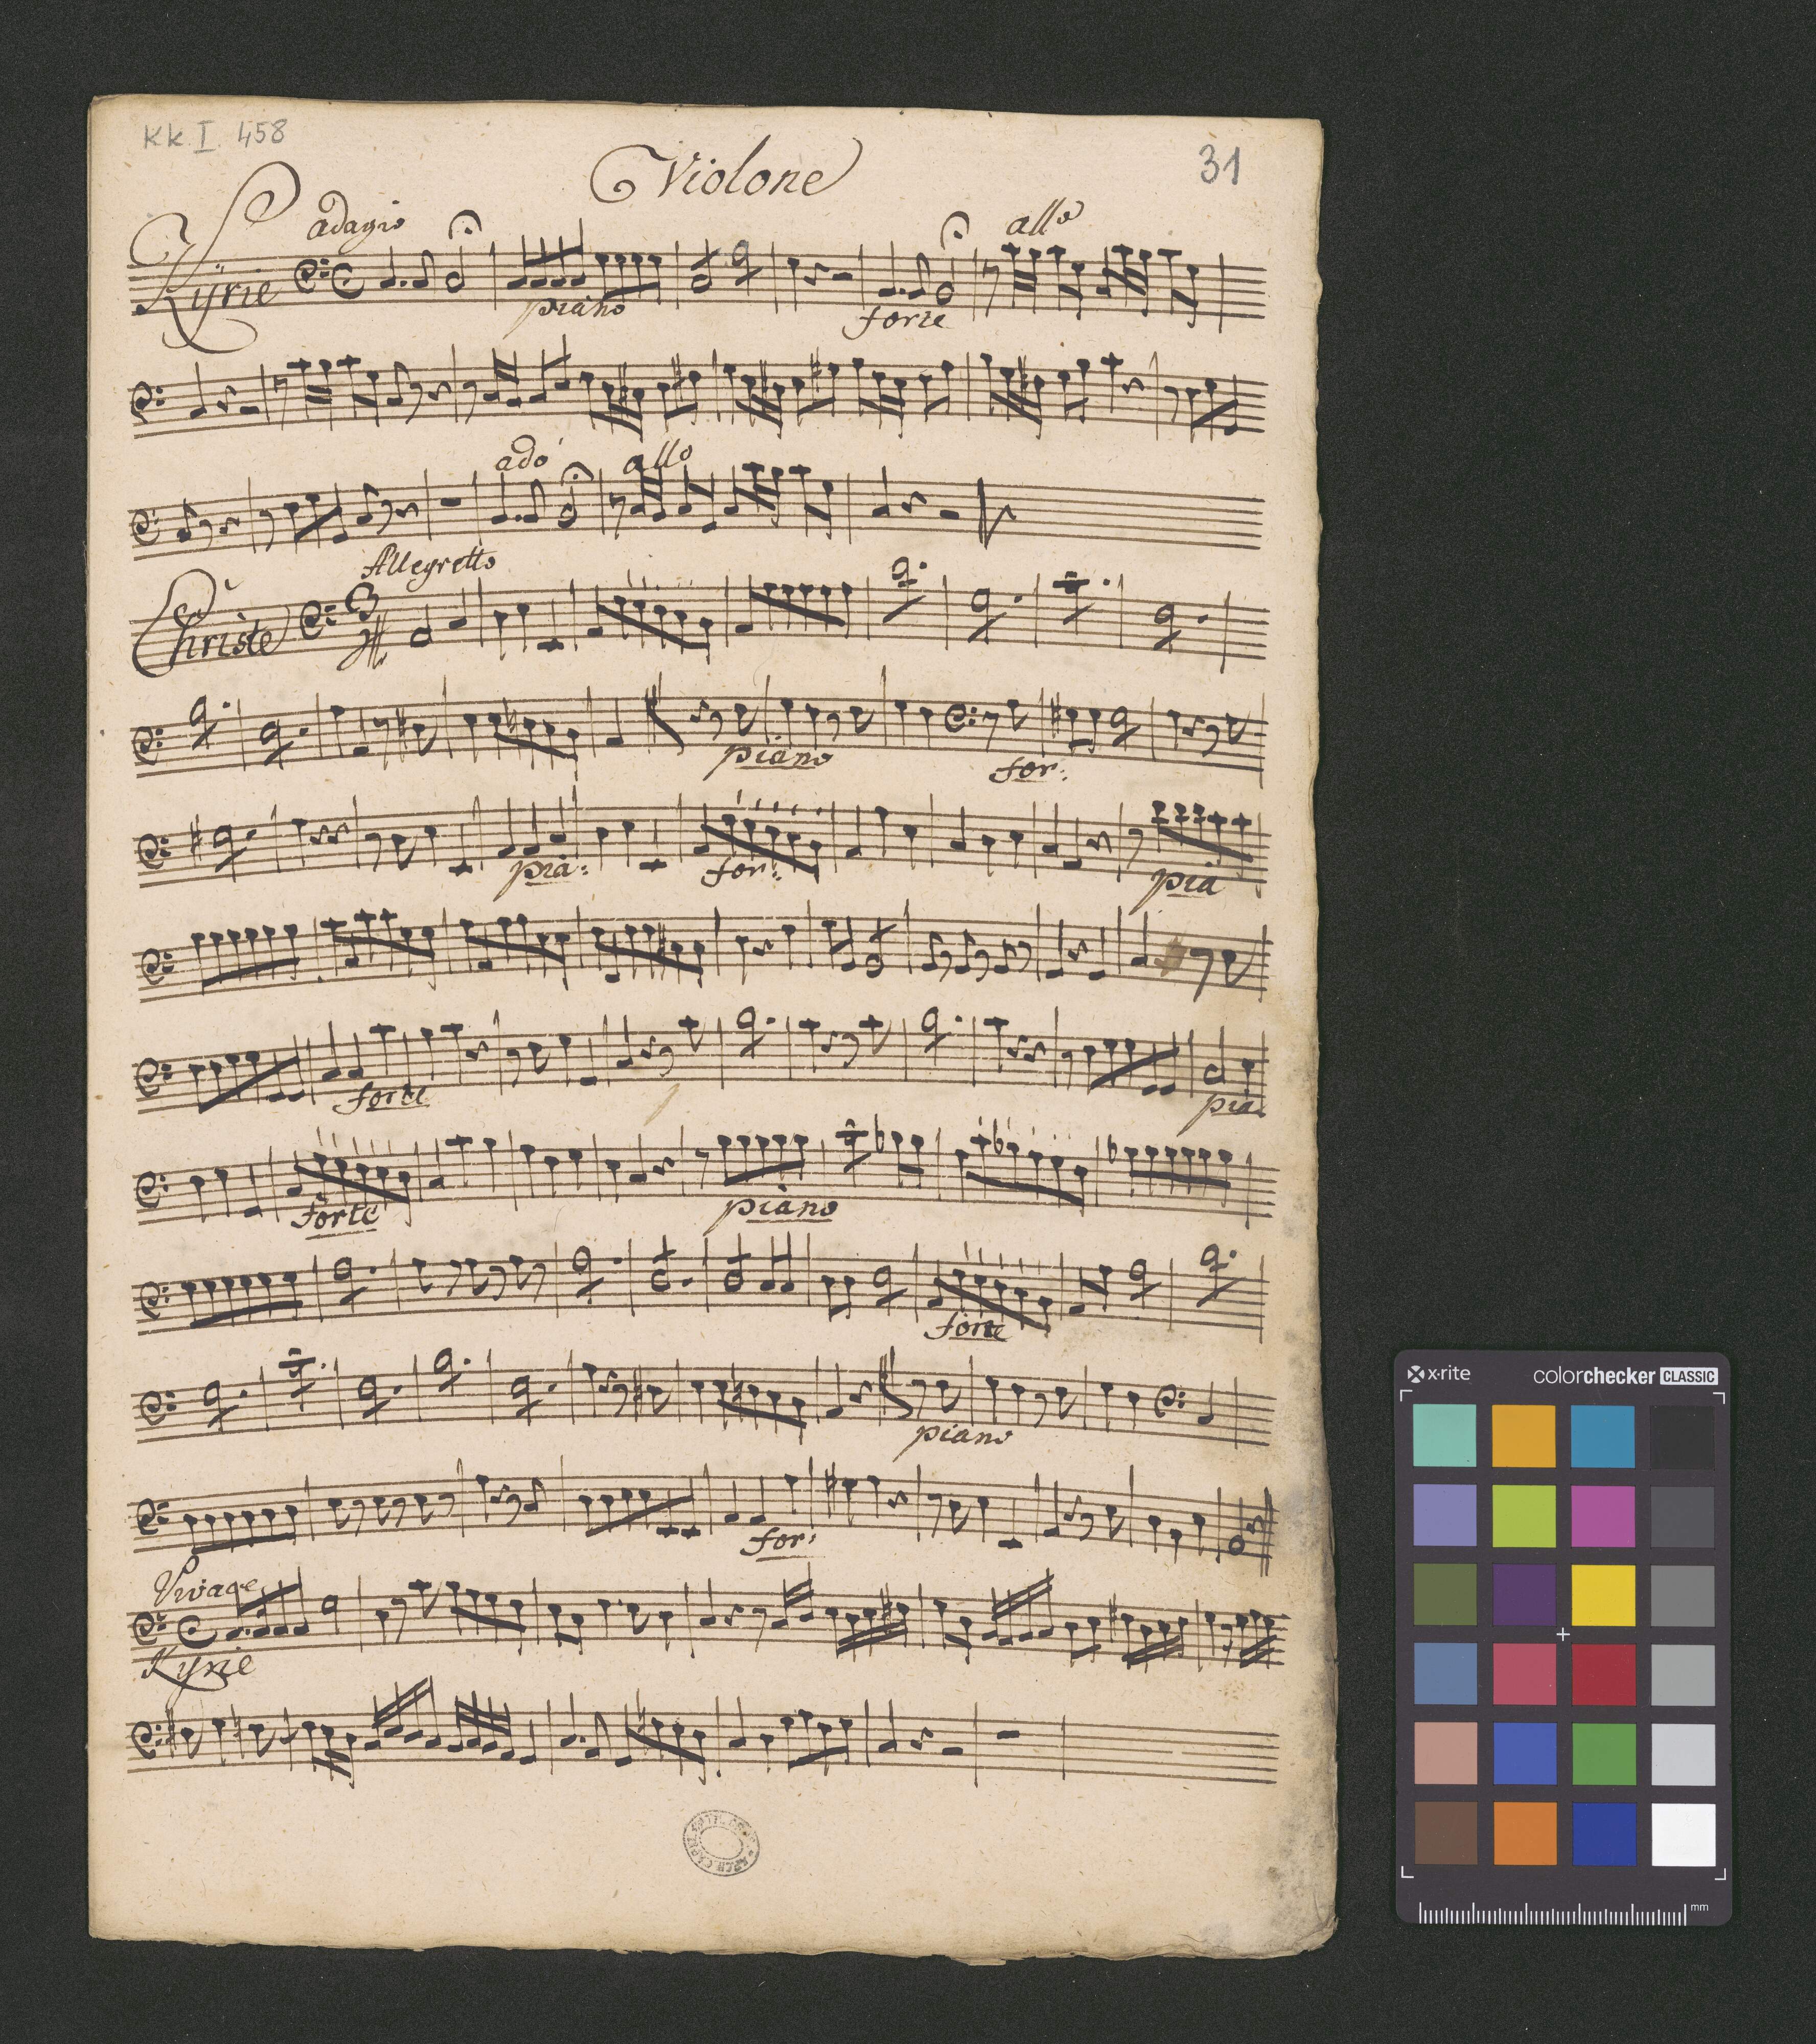 KK I 458
Violone
31
adagio
allo
Kÿrie
piano
forte
ado
allo
Allegretto
Christe
3
piano
for:
pia:
for:
pia
forte
pia
forte
piano
forte
piano
for:
Vivace
Kyrie
x-rite
colorchecker CLASSIC
mm